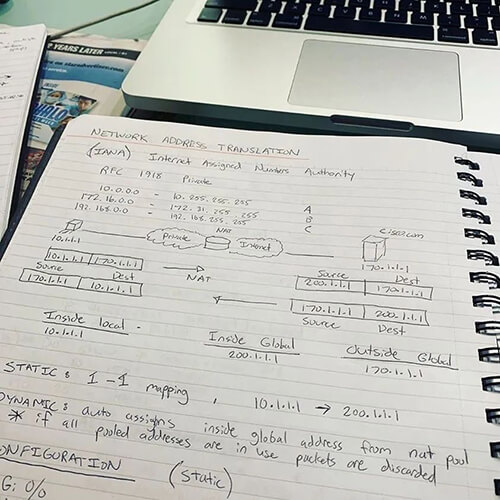 YEARS LATER
NETWORK ADDRESS TRANSLATION
(IANA) Internet Assigned Numbers Authority
RFC 1918 Private
10.0.0.0 - 10.255.255.255 A
172.16.0.0 - 172.31.255.255 B
192.168.0.0 - 192.168.255.255 C
NAT
10.1.1.1 Private Internet Cisco.com
170.1.1.1
10.1.1.1 170.1.1.1
Source Dest
NAT
170.1.1.1 10.1.1.1
Source Dest
200.1.1.1 170.1.1.1
170.1.1.1 200.1.1.1
Source Dest
Inside local Inside Global Outside Global
10.1.1.1 200.1.1.1 170.1.1.1
STATIC: 1-1 mapping , 10.1.1.1 → 200.1.1.1
DYNAMIC: auto assigns inside global address from nat pool
* if all pooled addresses are in use packets are discarded
CONFIGURATION (Static)
G: 0/0